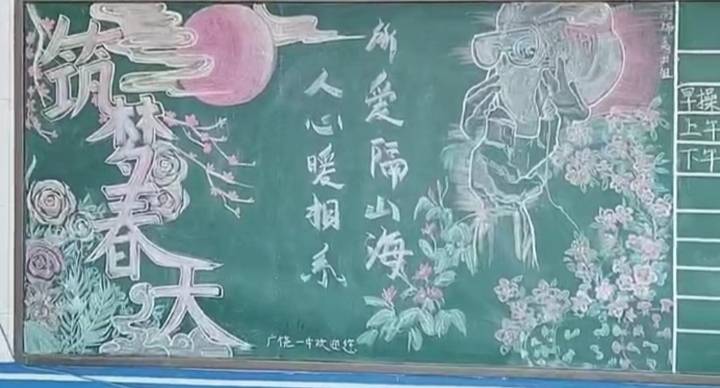 筑梦春天
所爱隔山海
人心暖相系
广饶一中欢迎您
早操
上午
下午